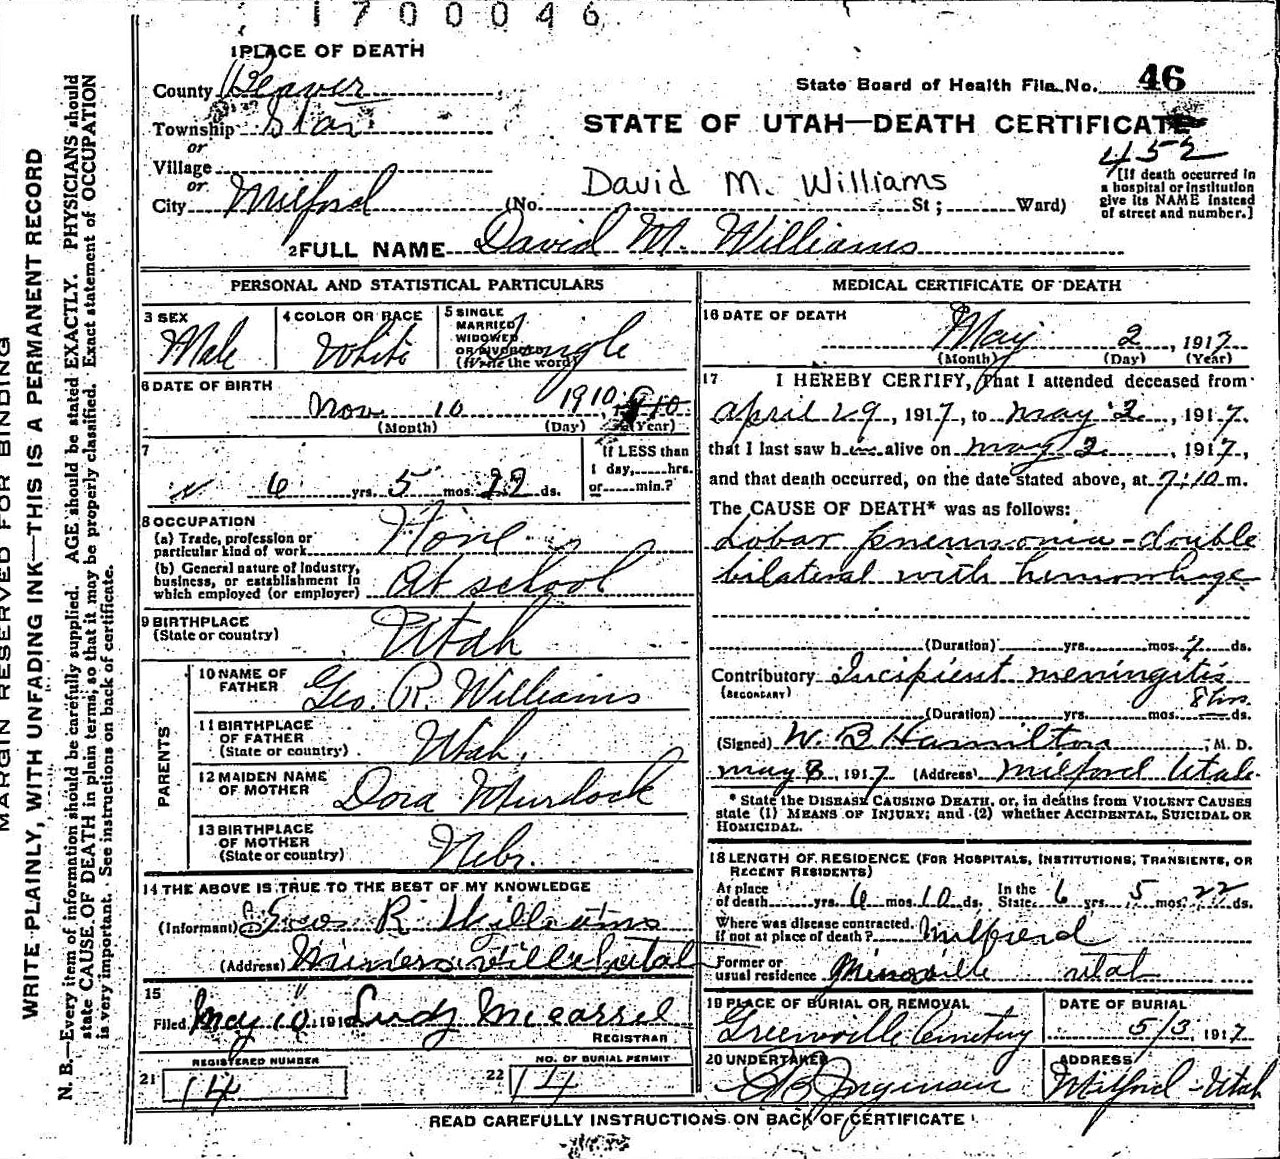 1700046
1 PLACE OF DEATH
County Beaver
State Board of Health File No. 46
Township Star
STATE OF UTAH—DEATH CERTIFICATE
or
452
Village
or
[If death occurred in
a hospital or institution
give its NAME instead
of street and number.]
David M. Williams
City Milford (No. St; Ward)
2 FULL NAME David M. Williams
PERSONAL AND STATISTICAL PARTICULARS
3 SEX
Male
4 COLOR OR RACE
White
5 SINGLE
MARRIED
WIDOWED
OR DIVORCED
(Write the word)
Single
6 DATE OF BIRTH
Nov 10 1910, 1910
(Month) (Day) (Year)
7
6 yrs. 5 mos. 22 ds.
If LESS than
1 day, hrs.
or min.?
8 OCCUPATION
(a) Trade, profession or
particular kind of work None
(b) General nature of industry,
business, or establishment in
which employed (or employer) At school
9 BIRTHPLACE
(State or country) Utah
PARENTS
10 NAME OF
FATHER Geo. R. Williams
11 BIRTHPLACE
OF FATHER
(State or country) Utah,
12 MAIDEN NAME
OF MOTHER Dora Murdock
13 BIRTHPLACE
OF MOTHER
(State or country) Nebr.
14 THE ABOVE IS TRUE TO THE BEST OF MY KNOWLEDGE
(Informant) Geo R Williams
(Address) Minersville Utah
15
Filed May 10 191 Ludy McCarrel
REGISTRAR
REGISTERED NUMBER
21 14
NO. OF BURIAL PERMIT
22 14
MEDICAL CERTIFICATE OF DEATH
16 DATE OF DEATH
May 2, 1917
(Month) (Day) (Year)
17 I HEREBY CERTIFY, That I attended deceased from
april 29, 1917, to may 2, 1917.
that I last saw him alive on may 2, 1917,
and that death occurred, on the date stated above, at 7:10 m.
The CAUSE OF DEATH* was as follows:
Lobar pneumonia - double
bilateral with hemorrhage
(Duration) yrs. mos. 7 ds.
Contributory Incipient meningitis
(SECONDARY)
8 hrs
(Duration) yrs. mos. ds.
(Signed) W. B Hamilton, M. D.
may 8, 1917 (Address) Milford Utah
* State the DISEASE CAUSING DEATH, or, in deaths from VIOLENT CAUSES
state (1) MEANS OF INJURY; and (2) whether ACCIDENTAL, SUICIDAL OR
HOMICIDAL.
18 LENGTH OF RESIDENCE (FOR HOSPITALS, INSTITUTIONS, TRANSIENTS, OR
RECENT RESIDENTS)
At place
of death yrs. 6 mos. 10 ds. In the State 6 yrs. 5 mos. 22 ds.
Where was disease contracted,
if not at place of death? Milford
Former or
usual residence Minersville Utah
19 PLACE OF BURIAL OR REMOVAL
Greenville Cemetery
DATE OF BURIAL
5/3 1917
20 UNDERTAKER
Jorgensen
ADDRESS
Milford - Utah
READ CAREFULLY INSTRUCTIONS ON BACK OF CERTIFICATE
MARGIN RESERVED FOR BINDING
WRITE PLAINLY, WITH UNFADING INK—THIS IS A PERMANENT RECORD
N. B.—Every item of information should be carefully supplied. AGE should be stated EXACTLY. PHYSICIANS should
state CAUSE OF DEATH in plain terms, so that it may be properly classified. Exact statement of OCCUPATION
is very important. See instructions on back of certificate.